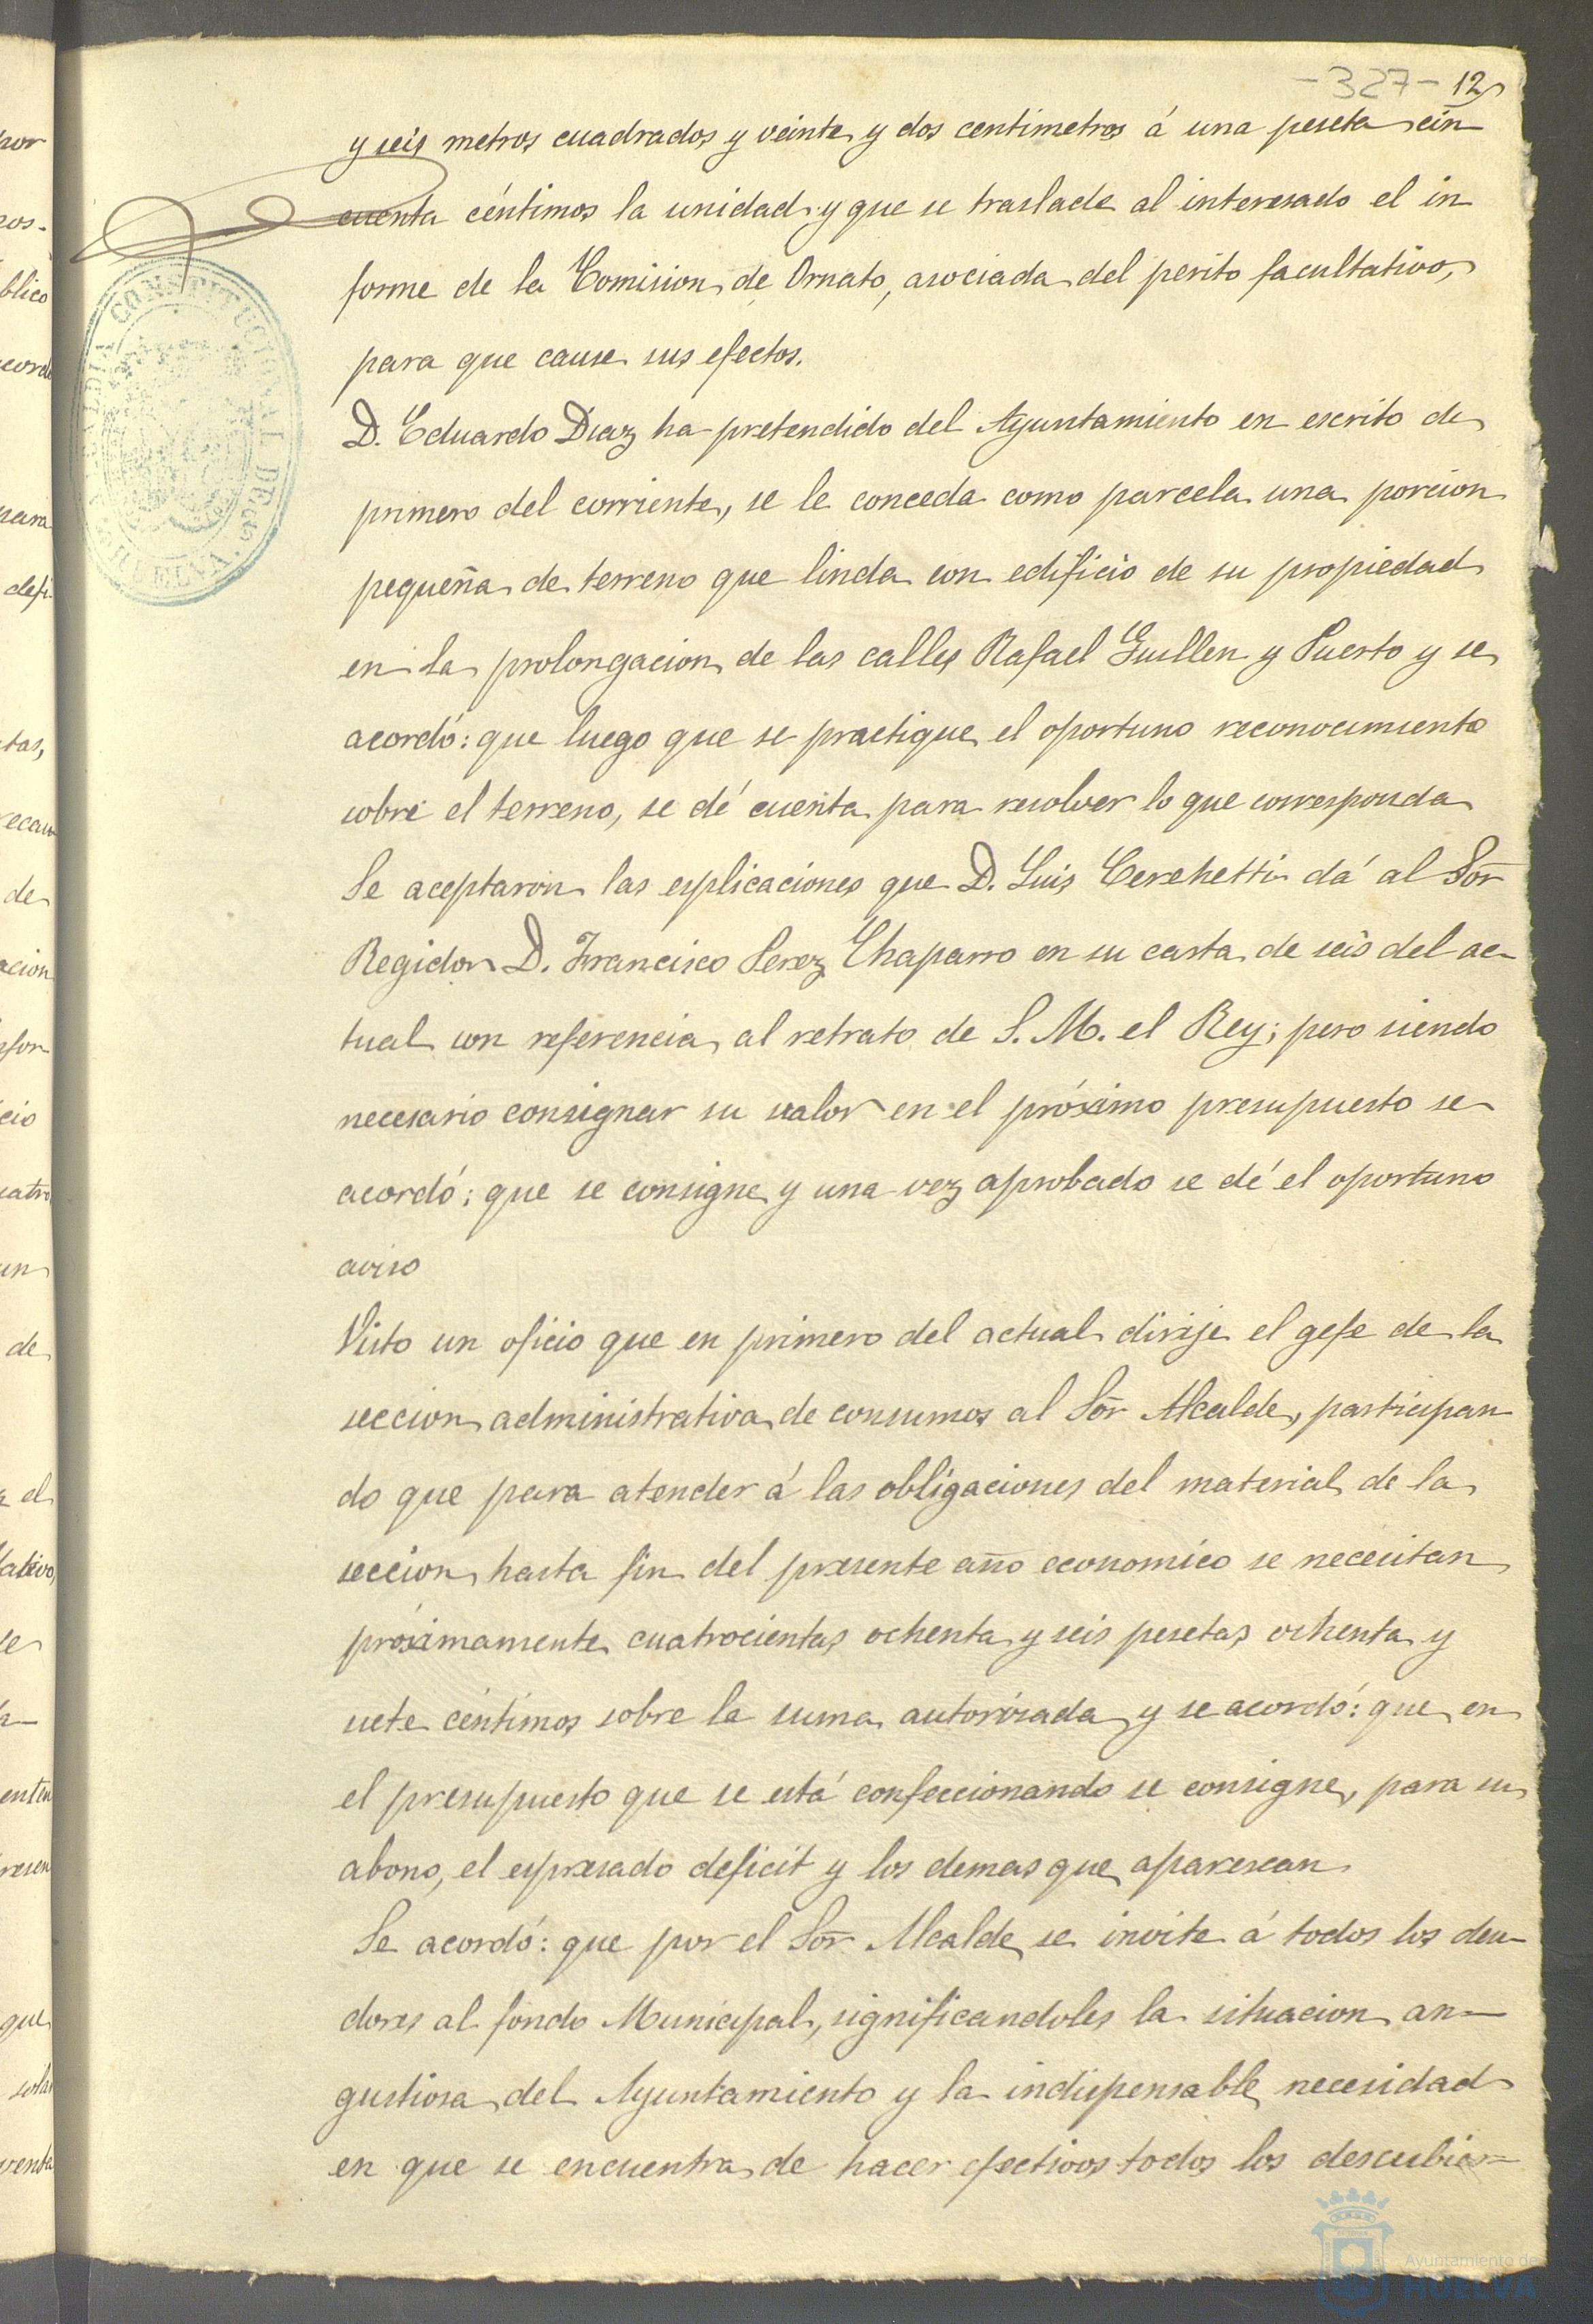 -327- 12
y seis metros cuadrados y veinte y dos centimetros á una peseta cin
cuenta céntimos la unidad y que se traslade al interesado el in
forme de la Comision de Ornato, asociada del perito facultativo,
para que cause sus efectos.
D. Eduardo Diaz ha pretendido del Ayuntamiento en escrito de
primero del corriente, se le conceda como parcela una porcion
pequeña de terreno que linda con edificio de su propiedad
en la prolongacion de las calles Rafael Guillen y Puerto y se
acordó: que luego que se practique el oportuno reconocimiento
sobre el terreno, se dé cuenta para resolver lo que corresponda
Se aceptaron las esplicaciones que D. Luis Cerehetti dá al Sor
Regidor D. Francisco Perez Chaparro en su carta de seis del ac-
tual con referencia al retrato de S. M. el Rey; pero siendo
necesario consignar su valor en el próximo presupuesto se
acordó: que se consigne y una vez aprobado se dé el oportuno
aviso
Visto un oficio que en primero del actual dirije el gefe de la
seccion administrativa de consumos al Sor Alcalde, participan
do que para atender á las obligaciones del material de la
seccion hasta fin del presente año economico se necesitan
próximamente cuatrocientas ochenta y seis pesetas ochenta y
siete céntimos sobre la suma autorisada y se acordó: que en
el presupuesto que se está confeccionando se consigne, para su
abono, el espresado deficit y los demas que aparescan
Se acordó: que por el Sor Alcalde se invite á todos los deu-
dores al fondo Municipal, significandoles la situacion an-
gustiosa del Ayuntamiento y la indispensable necesidad
en que se encuentra de hacer efectivos todos los descubier-
ALCALDIA CONSTITUCIONAL DE HUELVA
Ayuntamiento de
HUELVA